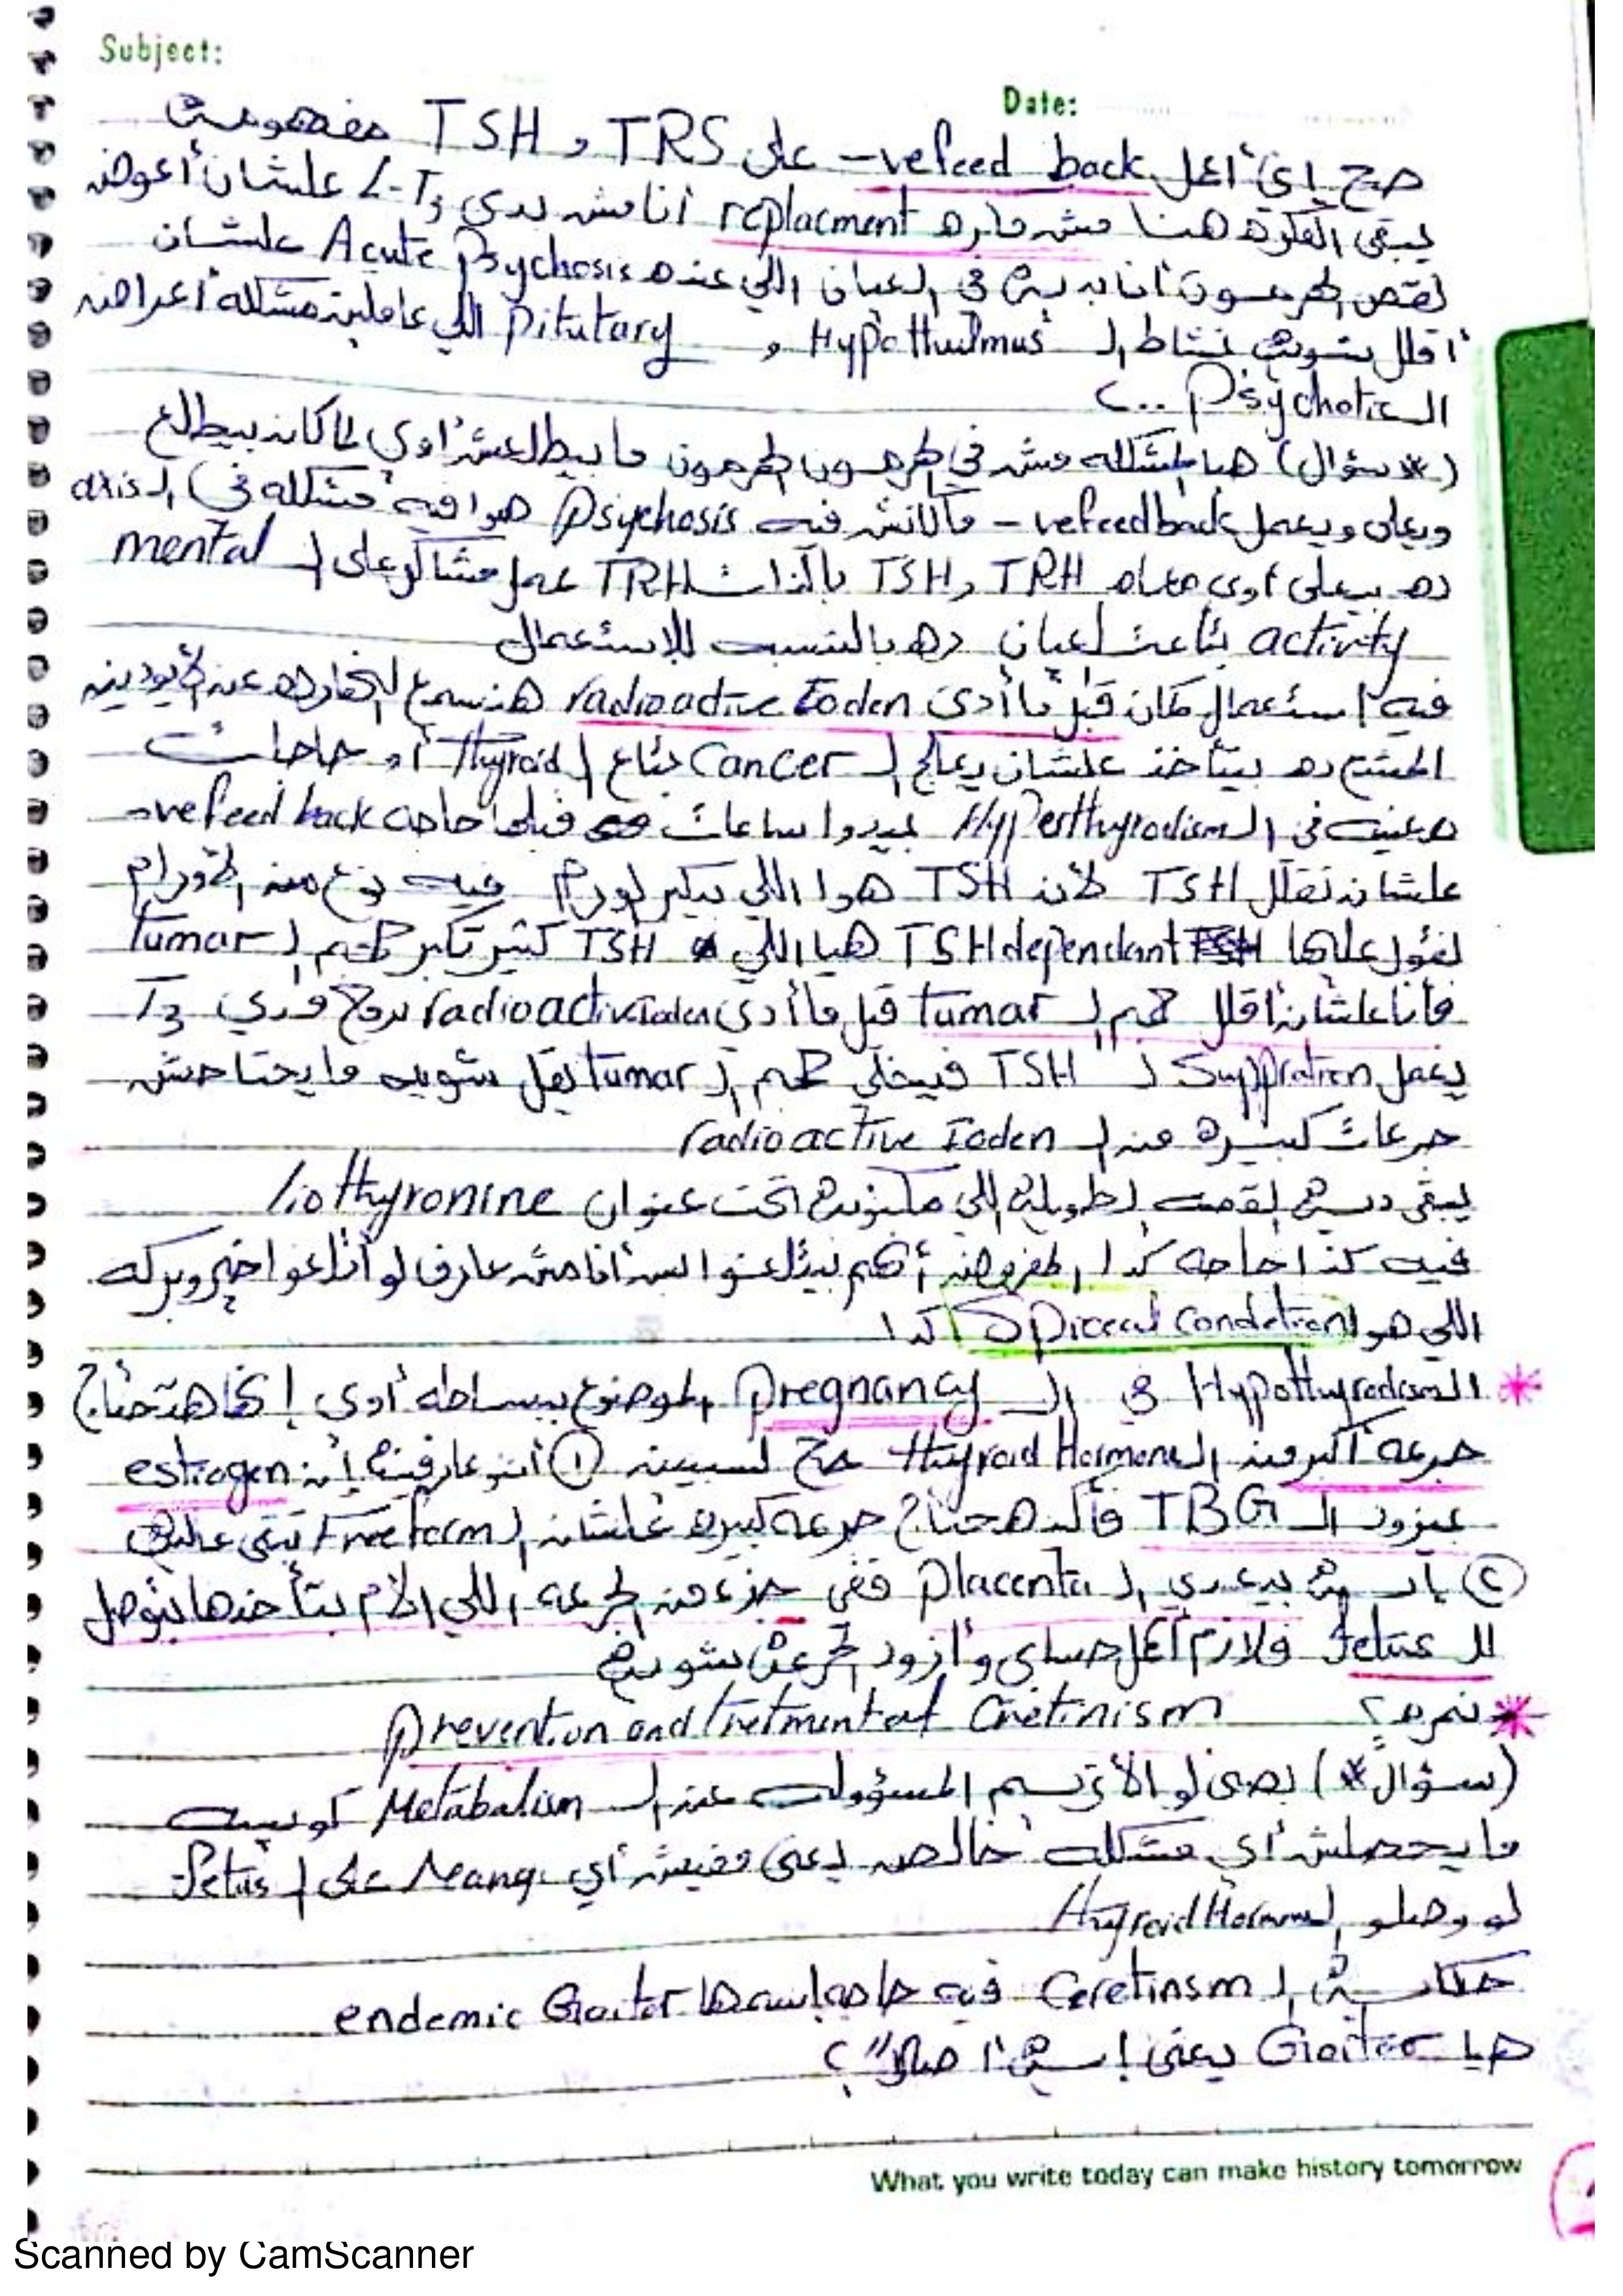 Subject:
Date:
صح إني أعمل ve feed back- على TRS و TSH مفهومة
يبقى الفكرة هنا مش فكره replacment أنا مش بدي L-T3 علشان أعوض
نقص الهرمون أنا بديه في العيان اللي عنده Acute Psychosis علشان
أقلل شويه نشاط الـ Hypothalmus و Pitutary اللي عاملين مشكله أعراض
الـ Psychotic ..؟
(* سؤال) هيا المشكله مش في الهرمون الهرمون ما بيطلعش أوي لما كان بيطلع
وبعلى ويعمل ve feed back - ماكانش فيه Psychosis هوا فيه مشكله في الـ axis
ده بيعلى أوى معاه TRH و TSH بالذات TRH عمل مشاكل على الـ mental
activity بتاعت العيان ده بالنسبه للإستعمال
فيه إستعمال كمان قبل ما أدى radioactive Ioden هنسمع النهارده عن الأيودين
المشع ده بيتاخد علشان يعالج الـ Cancer بتاع الـ Thyroid أو حاجات
معينه في الـ Hyperthyrodism بيدوا ساعات قبلها حاجه ve feed back-
علشان نقلل TSH لأن TSH هوا اللي بيكبر الورم فيه نوع من الأورام
نقول عليها TSH dependant هيا اللي TSH كتير تكبر حجم الـ Tumar
فأنا علشان أقلل حجم الـ tumar قبل ما أدي radioactive Ioden بروح مدي T3
يعمل Suppration لـ TSH فيخلي حجم الـ tumar يقل شويه ما يحتاجش
جرعات كبيره من الـ radioactive Ioden
يبقى دي القصه الطويله اللي مكتوبه تحت عنوان liothyronine
فيه كذا حاجه كدا المفروض أنكم بتتلغوا بس أنا مش عارف لو اتلغوا خير وبركه
اللي هوا Spiceal condetion كدا
* الـ Hypothyrodism في الـ Pregnancy الموضوع ببساطه أوى إنها هتحتاج
جرعه أكبر من الـ thyroid Hormone صح لسببين ① أنتو عارفين إن estrogen
بيزود الـ TBG فأكيد هحتاج جرعه كبيره علشان الـ Free form تبقى عاليه
② بيعدي الـ Placenta ففي جزء من الجرعه اللي الأم بتأخدها بتوصل
للـ fetus فلازم أعمل حسابي وأزود الجرعه شويه
* نمره ٢ Prevention and Tretment of Cretinism
(سؤال*) بصى لو الأنزيم المسؤول عن الـ Metabalism كويس
ما يحصلش أي مشكله خالص يعني مفيش أي على الـ fetus
لو وصلو الـ thyroid Hormone
حكايه الـ Ceretinsm فيه حاجه إسمها endemic Goiter
هيا Goiter يعني إيه أصلاً؟
What you write today can make history tomorrow
Scanned by CamScanner